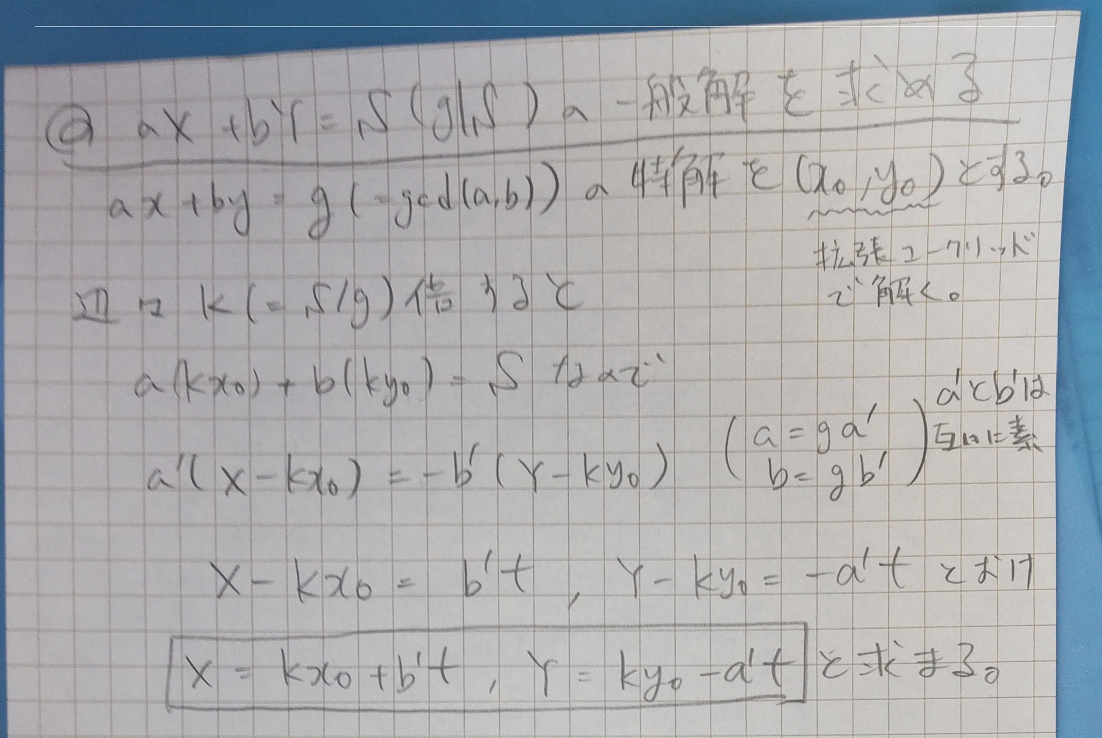 @ aX+bY=S(g|S)の一般解を求める
ax+by=g(=gcd(a,b))の特解を(x₀,y₀)とする。
拡張ユークリッド
で解く。
辺々k(=S/g)倍すると
a(kx₀)+b(ky₀)=Sなので
a'(X-kx₀)=-b'(Y-ky₀) (a=ga' b=gb') a'とb'は
互いに素
X-kx₀=b't, Y-ky₀=-a'tとおけ
X=kx₀+b't, Y=ky₀-a'tと求まる。